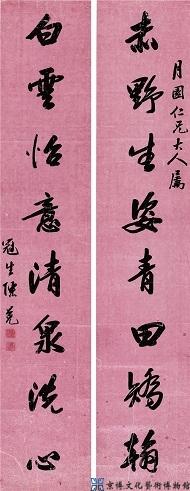 月園仁兄大人属
赤野生姿青田矯翰
白雲怡意清泉洗心
冠生陳堯
京博文化藝術博物館